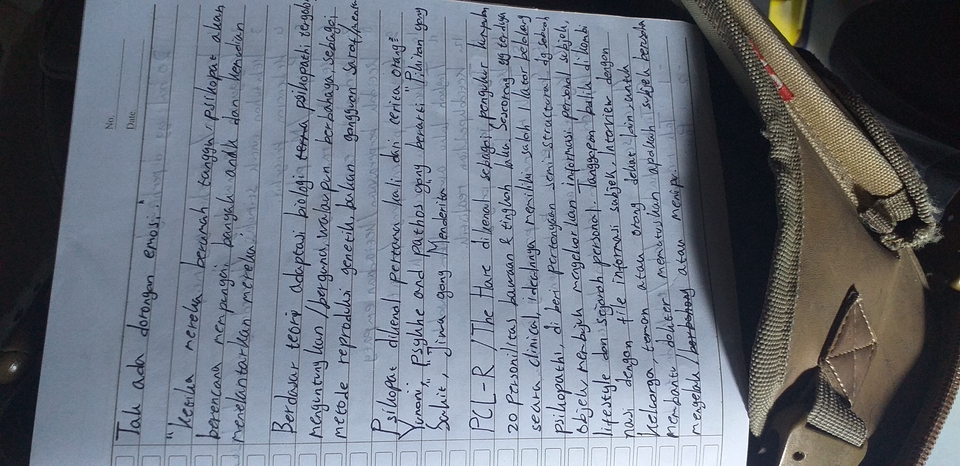 No.
Date
Tak ada dorongan emosi"
"Ketika mereka berumah tangga psikopat akan
berencana mempunyai banyak anak dan kemudian
menelantarkan mereka
Berdasar teori adaptasi biologi psikopati
menguntungkan / berguna walaupun berbahaya sebagai
metode reproduksi genetik, bukan gangguan saraf/
Psikopat dikenal pertama kali dari cerita orang²
Yunani, Psyche and pathos yang berarti "Pikiran yang
Sakit, Jiwa yang Menderita
PCL-R / The Hare dikenal sebagai pengukur
20 personilitas bawaan & tingkah laku seseorang
secara clinical, idealnya memiliki salah 1 latar belakang
psikopathi. di beri pertanyaan semi-structural dg sebuah
objek, membujuk mengeluarkan informasi personal subjek,
lifestyle dan sejarah personal. Tanggapan balik di kombi
nasi dengan file informasi subjek. Interview dengan
Keluarga teman atau orang dekat lain untuk
membantu dokter memutuskan apakah subjek berusaha
mengelak / atau menipu